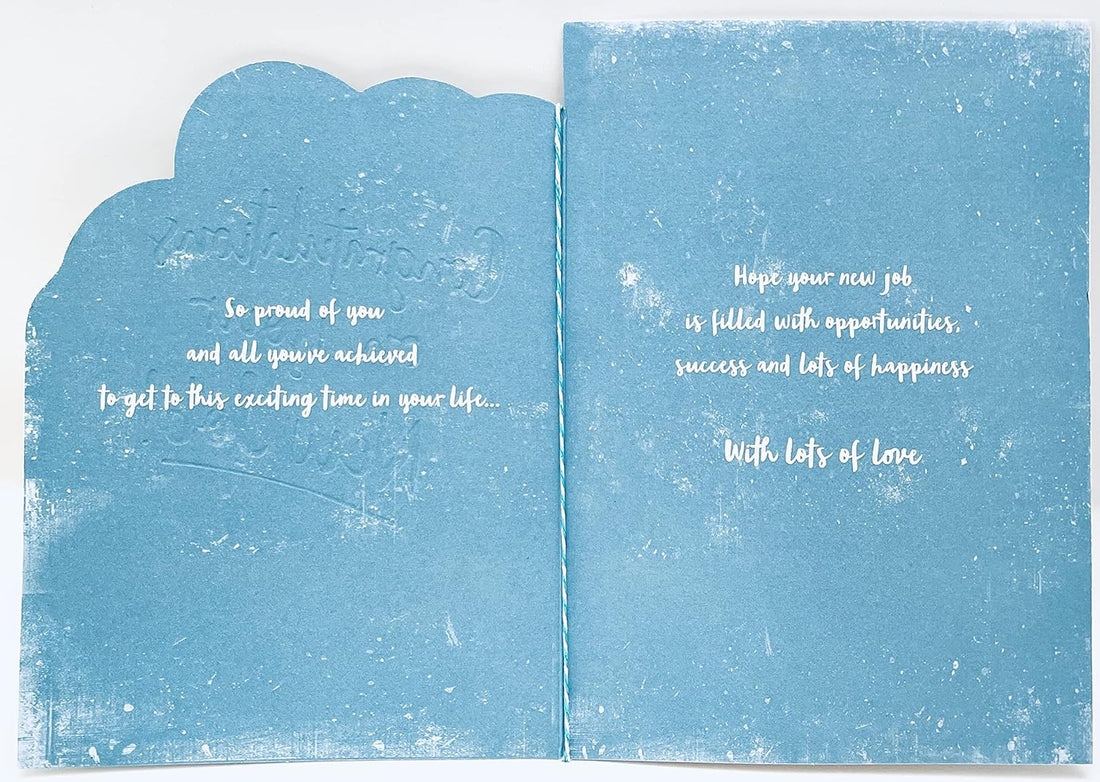 So proud of you
and all you've achieved
to get to this exciting time in your life...
Hope your new job
is filled with opportunities,
success and lots of happiness
With lots of love
Congratulations
on your
New Job!